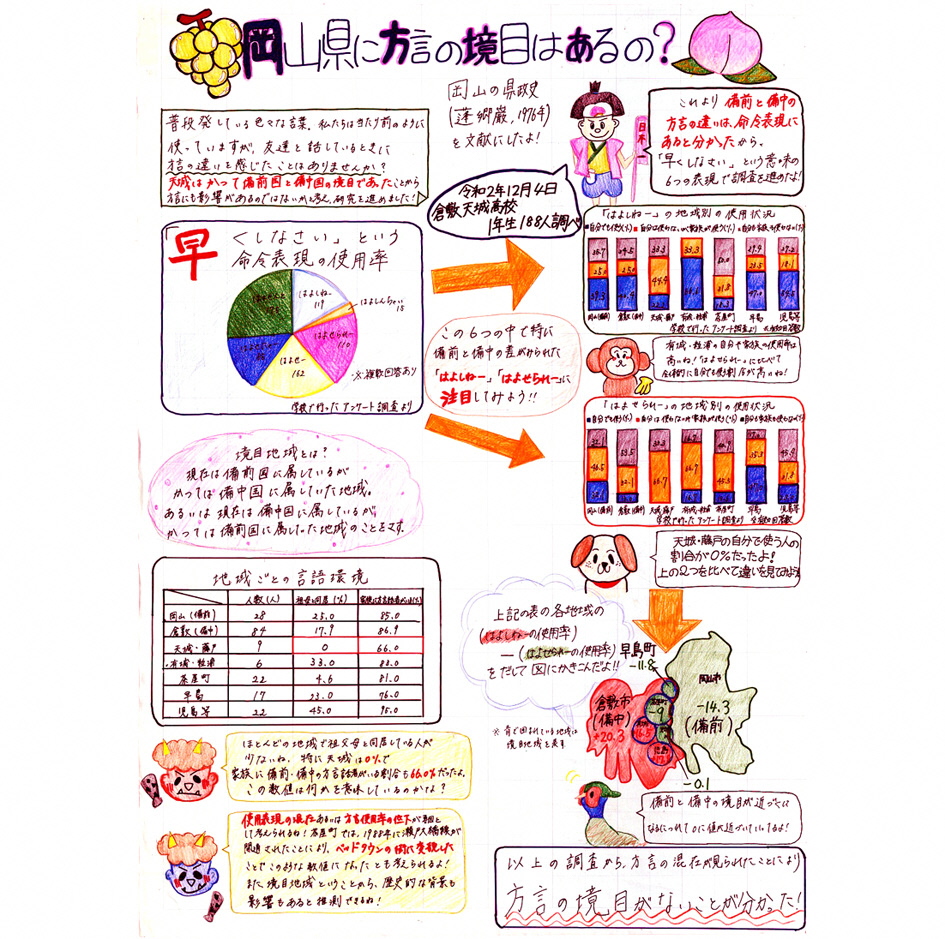 岡山県に方言の境目はあるの?
岡山の県政史
(蓬郷巌,1976年)
を文献にしたよ!
日本一
これより備前と備中の
方言の違いは、命令表現に
あると分かったから、
「早くしなさい」という意味の
6つの表現で調査を進めたよ!
普段発している色々な言葉、私たちは当たり前のように
使っていますが、友達と話しているときに
方言の違いを感じたことはありませんか?
天城はかつて備前国と備中国の境目であったことから
方言にも影響があるのではないかと考え、研究を進めました!
令和2年12月4日
倉敷天城高校
1年生188人調べ
「早くしなさい」という
命令表現の使用率
はよしねー
119
はよしんちゃい
15
はよせられー
110
はよせー
162
※複数回答あり
学校で行ったアンケート調査より
この6つの中で特に
備前と備中の差がみられた
「はよしねー」「はよせられー」に
注目してみよう!!
「はよしねー」の地域別の使用状況
■自分でも使う(%) ■自分は使わないが家族が使う(%) ■自分も家族も使わない(%)
岡山(備前) 倉敷(備中) 天城・藤戸 有城・粒浦 茶屋町 早島 児島等
学校で行ったアンケート調査より
有城・粒浦の自分や家族の使用率は
高いね!「はよせられー」に比べて
全体的に自分でも使う割合が高いね!
「はよせられー」の地域別の使用状況
■自分でも使う(%) ■自分は使わないが家族が使う(%) ■自分も家族も使わない(%)
岡山(備前) 倉敷(備中) 天城・藤戸 有城・粒浦 茶屋町 早島 児島等
学校で行ったアンケート調査より
境目地域とは?
現在は備前国に属しているが
かつては備中国に属していた地域。
あるいは現在は備中国に属しているが
かつては備前国に属した地域のことをさす。
天城・藤戸の自分で使う人の
割合が0%だったよ!
上の2つを比べて違いを見てみよう
地域ごとの言語環境
人数(人) 祖父母と同居(%)
岡山(備前) 28 25.0 85.0
倉敷(備中) 84 17.9 86.9
天城・藤戸 9 0 66.0
有城・粒浦 6 33.0 83.0
茶屋町 22 4.6 81.0
早島 17 23.0 76.0
児島等 22 45.0 95.0
上記の表の各地域の
(はよしねーの使用率)
—(はよせられーの使用率)
をだして図にかきこんだよ!!
※青で囲まれている地域は
境目地域を表す
早島町
-11.8
岡山市
-14.3
(備前)
倉敷市
(備中)
+20.3
-9
16.5
-0.1
ほとんどの地域で祖父母と同居している人が
少ないね。特に天城は0%で
家族に備前・備中の方言話者がいる割合も66.0%だったよ。
この数値は何かを意味しているのかな?
使用表現の混在あるいは方言使用率の低下が要因と
して考えられるね!茶屋町では、1988年に瀬戸大橋線が
開通されたことにより、ベッドタウンの街に変貌した
ことでこのような数値になったとも考えられるよ!
また境目地域ということから、歴史的な背景も
影響もあると推測できるね!
備前と備中の境目が近づくに
なるにつれて0に値が近づいているよ!
以上の調査から、方言の混在が見られたことにより
方言の境目がないことが分かった!